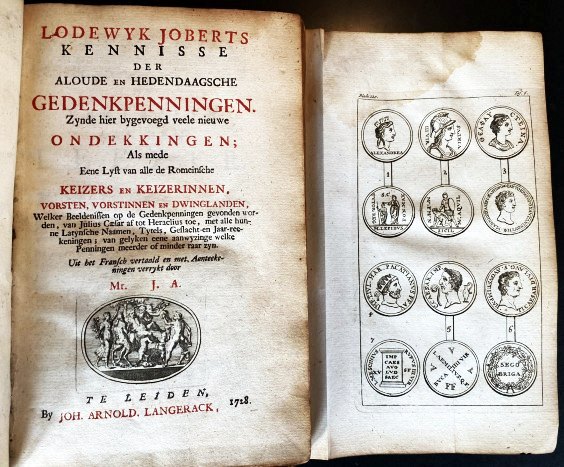 LODEWYK JOBERTS
KENNISSE
DER
ALOUDE EN HEDENDAAGSCHE
GEDENKPENNINGEN.
Zynde hier bygevoegd veele nieuwe
ONDEKKINGEN;
Als mede
Eene Lyst van alle de Romeinsche
KEIZERS EN KEIZERINNEN,
VORSTEN, VORSTINNEN EN DWINGLANDEN,
Welker Beeldenissen op de Gedenkpenningen gevonden wor-
den, van Julius Cæsar af tot Heraclius toe, met alle hun-
ne Latynsche Naamen, Tytels, Geslacht-en Jaar-ree-
keningen; van gelyken eene aanwyzinge welke
Penningen meerder of minder raar zyn.
Uit het Fransch vertaald en met Aanteeke-
ningen verrykt door
Mr. J. A.
TE LEIDEN,
By JOH. ARNOLD. LANGERACK, 1728.
ALEXANDREA
1
2
3
S.C.
M.LEPIDVS
5
6
7
IMP
CAES
AVG
LVD
SAEC
FF
SEGO
BRIGA